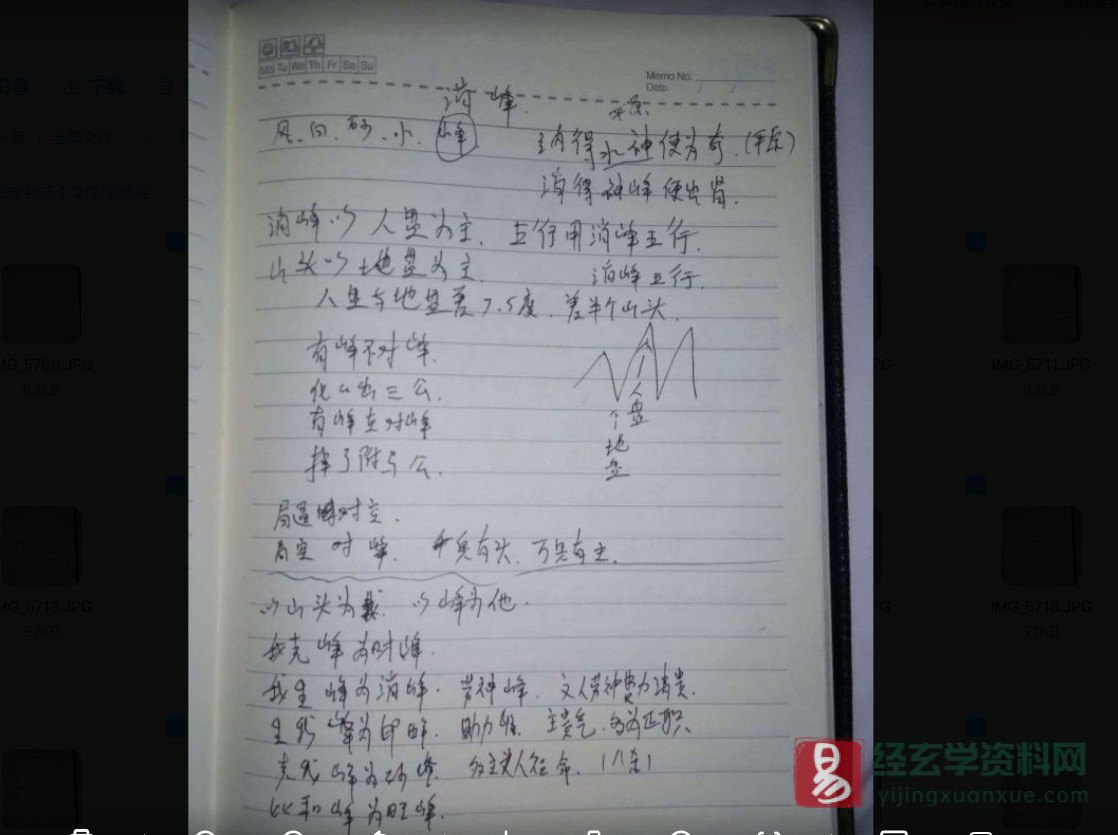 Mo Tu We Th Fr Sa Su
Memo No.
Date / /
消峰
风、向、砂、水、峰
纳得水神便为奇
消得神峰便出官
消峰以人盘为主、五行用消峰五行.
山头以地盘为主. 消峰五行.
人盘与地盘差7.5度、差半个山头
有峰不对峰
出三公.
有峰在对峰
人盘
地盘
对空、
对峰. 千兵有头、万兵有主.
以山头为我 以峰为他.
我克峰为财峰.
我生峰为消峰. 劳神峰. 文人劳神费力清贵.
生我峰为印峰. 助力峰. 主贵气.多为正职.
克我峰为 多主类人短命. (八杀)
比和峰为旺峰.
分享 下载
全部文件 > ... >
56个文件/文件夹
MG_5706.JPG
82KB
IMG_5711.JPG
92KB
MG_5713.JPG
87KB
IMG_5718.JPG
71KB
易 经玄学资料网
yijingxuanxue.com